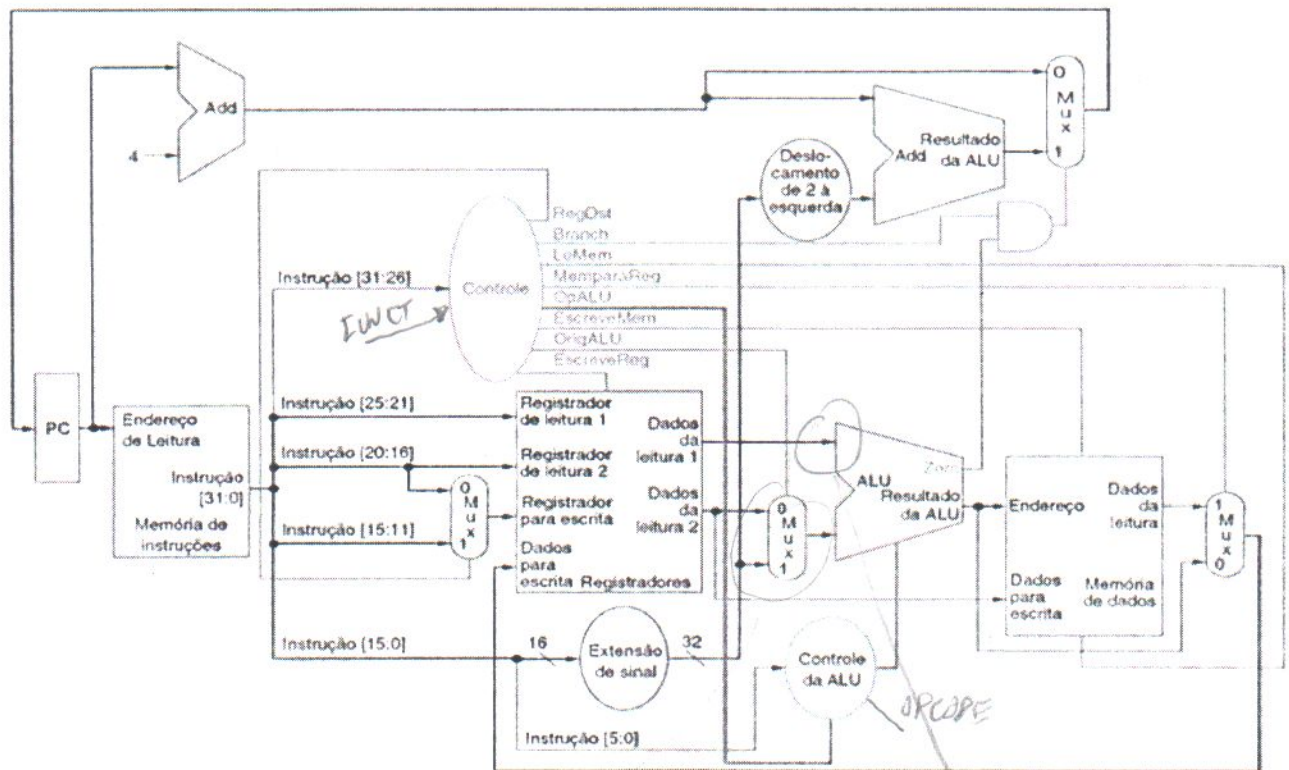 Add
4
0
Mux
1
Deslo-
camento
de 2 à
esquerda
Add
Resultado
da ALU
RegDst
Branch
LeMem
MemparaReg
OpALU
EscreveMem
OrigALU
EscreveReg
Controle
Instrução [31:26]
FUNCT
PC
Endereço
de Leitura
Instrução
[31:0]
Memória de
instruções
Instrução [25:21]
Instrução [20:16]
Instrução [15:11]
0
Mux
1
Registrador
de leitura 1
Registrador
de leitura 2
Registrador
para escrita
Dados
para
escrita
Registradores
Dados
da
leitura 1
Dados
da
leitura 2
0
Mux
1
Zero
ALU
Resultado
da ALU
Endereço
Dados
da
leitura
Dados
para
escrita
Memória
de dados
1
Mux
0
Instrução [15:0]
16
Extensão
de sinal
32
Controle
da ALU
OPCODE
Instrução [5:0]